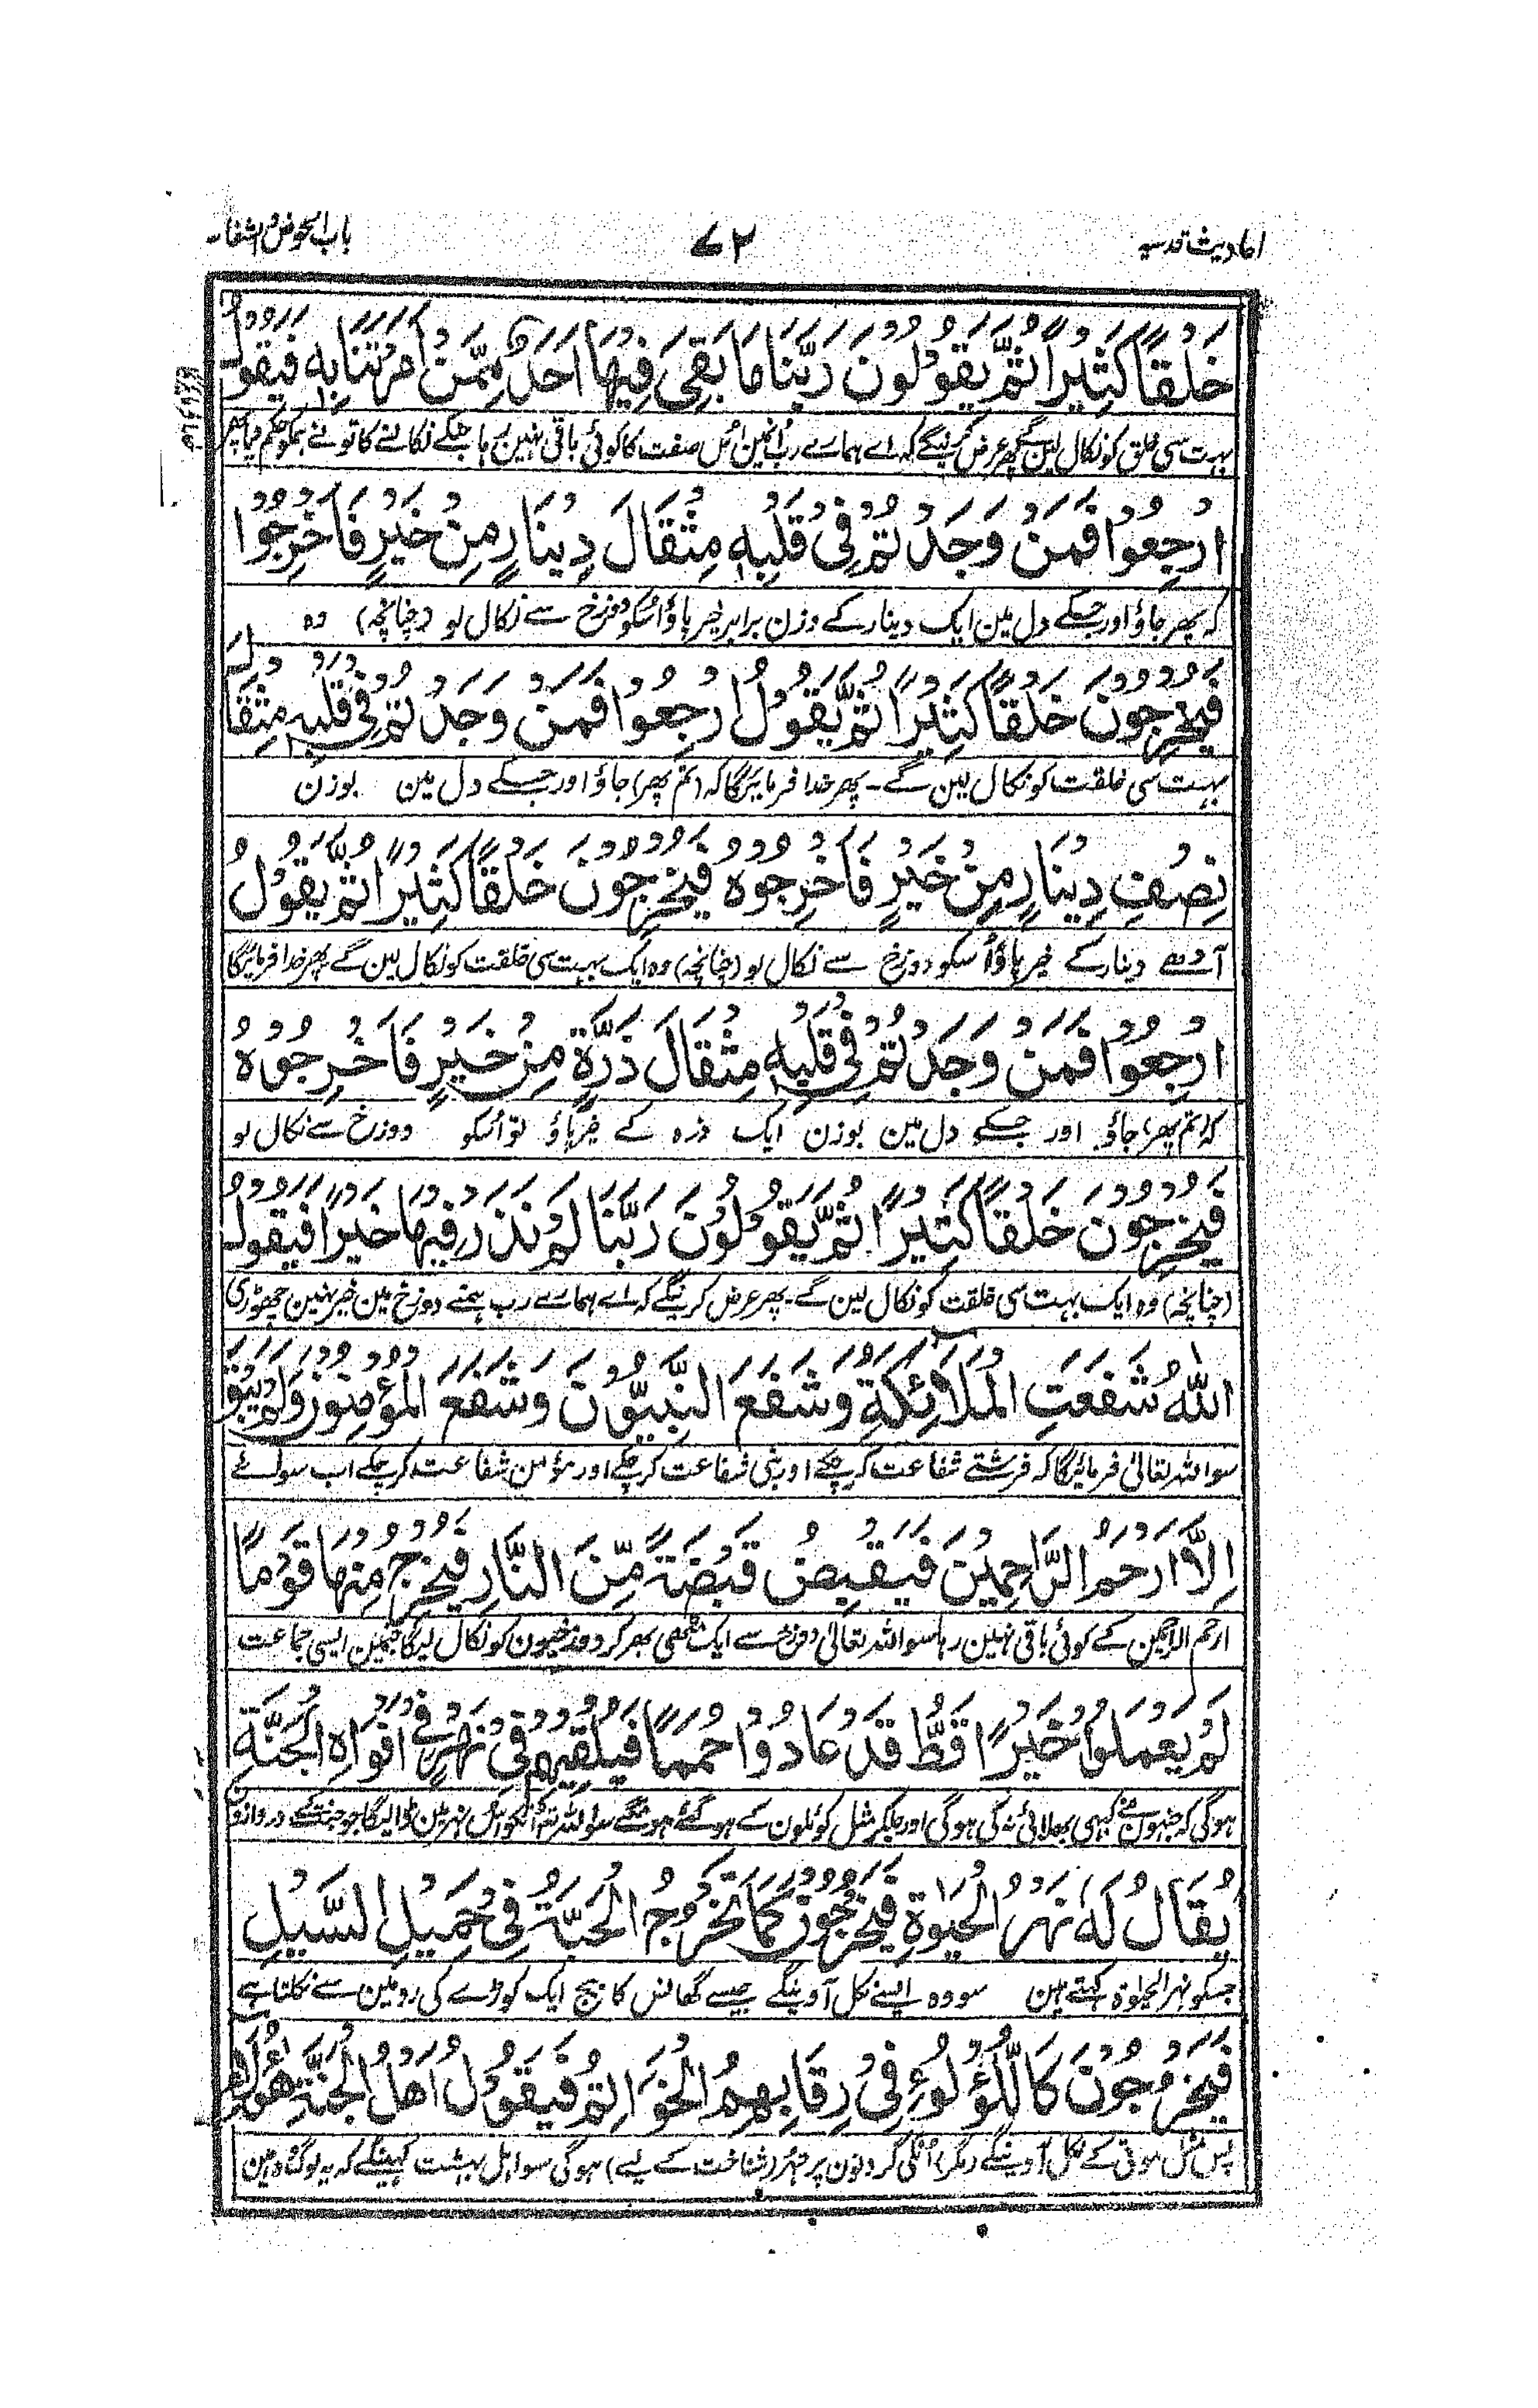 احادیث قدسیہ ۷۲ باب الحوض والشفاۃ
خَلْقًا كَثِيْرًا ثُمَّ يَقُوْلُوْنَ رَبَّنَا مَا بَقِيَ فِيْهَا اَحَدٌ مِّمَّنْ اَمَرْتَنَا بِهٖ فَيَقُوْلُ
بہت سی خلق کو نکال لین گے پھر عرض کرینگے کہ اے ہمارے رب انمین اس صفت کا کوئی باقی نہین رہا جسکے نکالنے کا تونے ہمکو حکم دیا پھر
ارْجِعُوْا فَمَنْ وَجَدْتُمْ فِيْ قَلْبِهٖ مِثْقَالَ دِيْنَارٍ مِنْ خَيْرٍ فَاَخْرِجُوْا
کہ پھر جاؤ اور جسکے دل مین ایک دینار کے وزن برابر خیر پاؤ اسکو دوزخ سے نکال لو (چنانچہ) وہ
فَيُخْرِجُوْنَ خَلْقًا كَثِيْرًا ثُمَّ يَقُوْلُ ارْجِعُوْا فَمَنْ وَجَدْتُمْ فِيْ قَلْبِهٖ مِثْقَالَ
بہت سی خلقت کو نکال لین گے۔ پھر خدا فرمائیگا کہ (تم پھر) جاؤ اور جسکے دل مین بوزن
نِصْفِ دِيْنَارٍ مِنْ خَيْرٍ فَاَخْرِجُوْهُ فَيُخْرِجُوْنَ خَلْقًا كَثِيْرًا ثُمَّ يَقُوْلُ
آدھے دینار کے خیر پاؤ اسکو دوزخ سے نکال لو (چنانچہ) وہ ایک بہت سی خلقت کو نکال لین گے پھر خدا فرمائیگا
ارْجِعُوْا فَمَنْ وَجَدْتُمْ فِيْ قَلْبِهٖ مِثْقَالَ ذَرَّةٍ مِنْ خَيْرٍ فَاَخْرِجُوْهُ
کہ (تم پھر) جاؤ اور جسکے دل مین بوزن ایک ذرہ کے خیر پاؤ تو اسکو دوزخ سے نکال لو
فَيُخْرِجُوْنَ خَلْقًا كَثِيْرًا ثُمَّ يَقُوْلُوْنَ رَبَّنَا لَمْ نَذَرْ فِيْهَا خَيْرًا فَيَقُوْلُ
(چنانچہ) وہ ایک بہت سی خلقت کو نکال لین گے۔ پھر عرض کرینگے کہ اے ہمارے رب ہمنے دوزخ مین خیر نہین چھوڑی
اللّٰهُ شَفَعَتِ الْمَلَآئِكَةُ وَشَفَعَ النَّبِيُّوْنَ وَشَفَعَ الْمُؤْمِنُوْنَ وَلَمْ يَبْقَ
سو اللہ تعالیٰ فرمائیگا کہ فرشتے شفاعت کر چکے اور نبی شفاعت کر چکے اور مؤمن شفاعت کر چکے اب سوائے
اِلَّا اَرْحَمُ الرَّاحِمِيْنَ فَيَقْبِضُ قَبْضَةً مِّنَ النَّارِ فَيُخْرِجُ مِنْهَا قَوْمًا
ارحم الراحمین کے کوئی باقی نہین رہا سو اللہ تعالیٰ دوزخ سے ایک مٹھی بھر کر دوزخیون کو نکال لیگا جنمین ایسی جماعت
لَمْ يَعْمَلُوْا خَيْرًا قَطُّ قَدْ عَادُوْا حُمَمًا فَيُلْقِيْهِمْ فِيْ نَهْرٍ فِيْ اَفْوَاهِ الْجَنَّةِ
ہوگی کہ جنہون نے کبھی بھلائی نہ کی ہوگی اور جلکر مثل کوئلون کے ہوگئے ہونگے سو اللہ انکو اس نہر مین ڈالیگا جو جنت کے دروازون
يُقَالُ لَهٗ نَهْرُ الْحَيٰوةِ فَيَخْرُجُوْنَ كَمَا تَخْرُجُ الْحَبَّةُ فِيْ حَمِيْلِ السَّيْلِ
جسکو نہر الحیٰوۃ کہتے ہین سو وہ ایسے نکل آوینگے جیسے گھانس کا بیج ایک کوڑے کی رو مین سے نکلتا ہے
فَيَخْرُجُوْنَ كَاللُّؤْلُؤِ فِيْ رِقَابِهِمُ الْخَوَاتِمُ فَيَقُوْلُ اَهْلُ الْجَنَّةِ هٰؤُلَاءِ
پس مثل موتی کے نکل آوینگے (مگر) انکی گردنون پر مہر (شناخت کے لیے) ہوگی سو اہل بہشت کہینگے کہ یہ لوگ وہ ہین